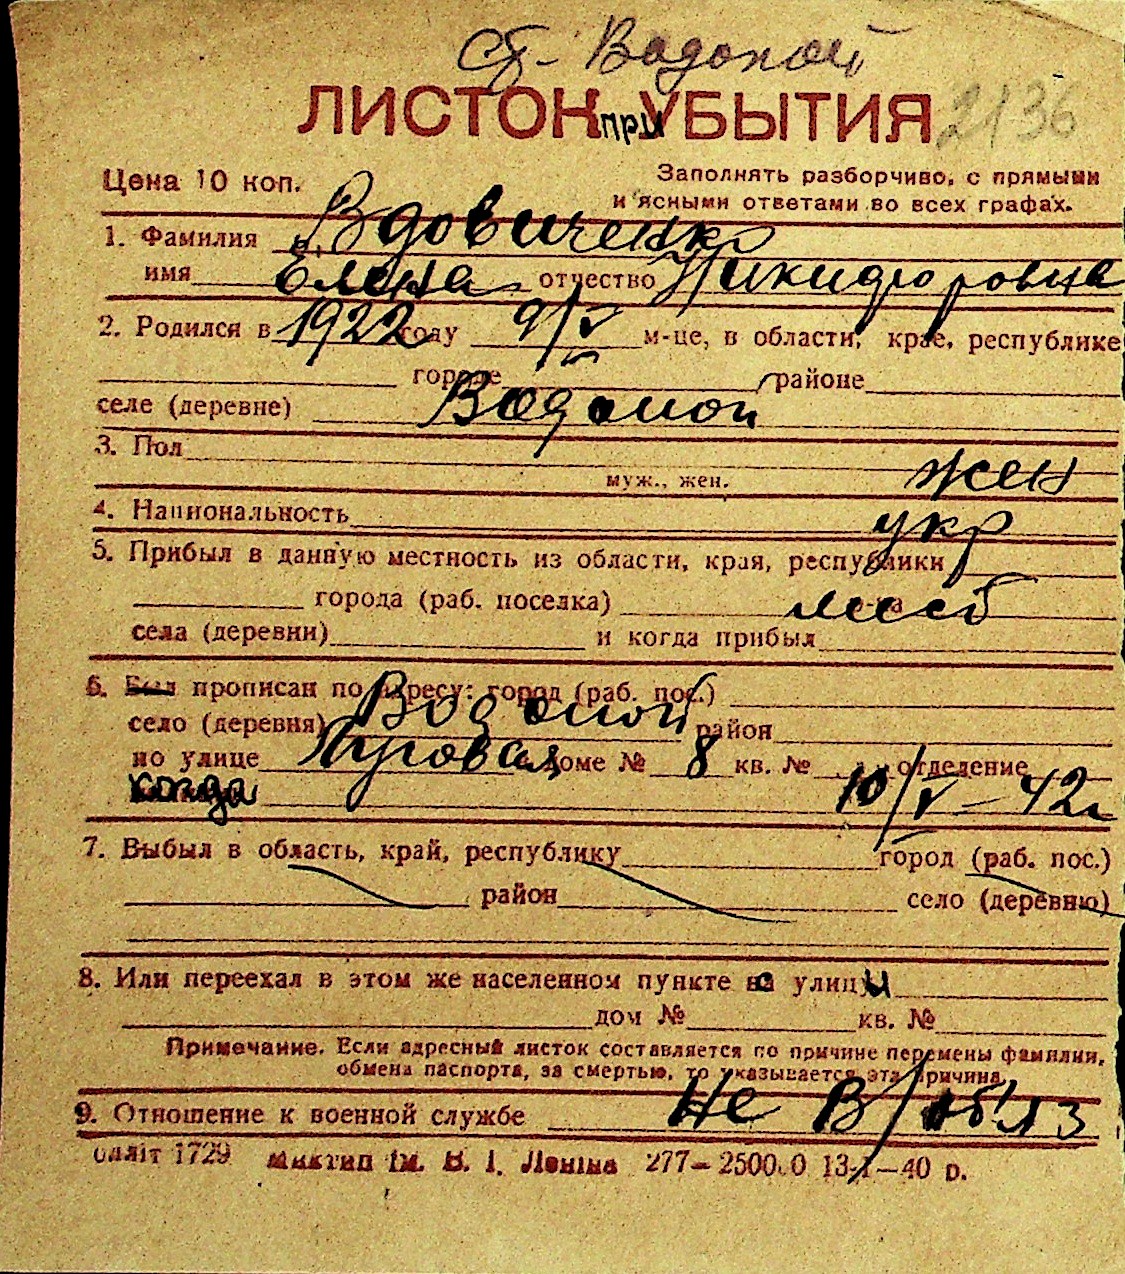 ст. Водопой
ЛИСТОК при УБЫТИЯ 2136
Цена 10 коп. Заполнять разборчиво, с прямыми
и ясными ответами во всех графах.
1. Фамилия Вдовиченко
имя Елена отчество Никифоровна
2. Родился в 1922 году 9/V м-це, в области, крае, республике
городе районе
селе (деревне) Водопой
3. Пол жен
муж., жен.
4. Национальность укр
5. Прибыл в данную местность из области, края, республики
города (раб. поселка)
села (деревни) и когда прибыл
6. Был прописан по адресу: город (раб. пос.)
село (деревня) Водопой район
по улице в доме № 8 кв. № отделение
когда 10/V-42г
7. Выбыл в область, край, республику город (раб. пос.)
район село (деревню)
8. Или переехал в этом же населенном пункте с улицы
дом № кв. №
Примечание. Если адресный листок составляется по причине перемены фамилии,
обмена паспорта, за смертью, то указывается эта причина.
9. Отношение к военной службе не в/обяз
олліт 1729 Миктип ім. В. І. Леніна 277—250000 13-I—40 р.